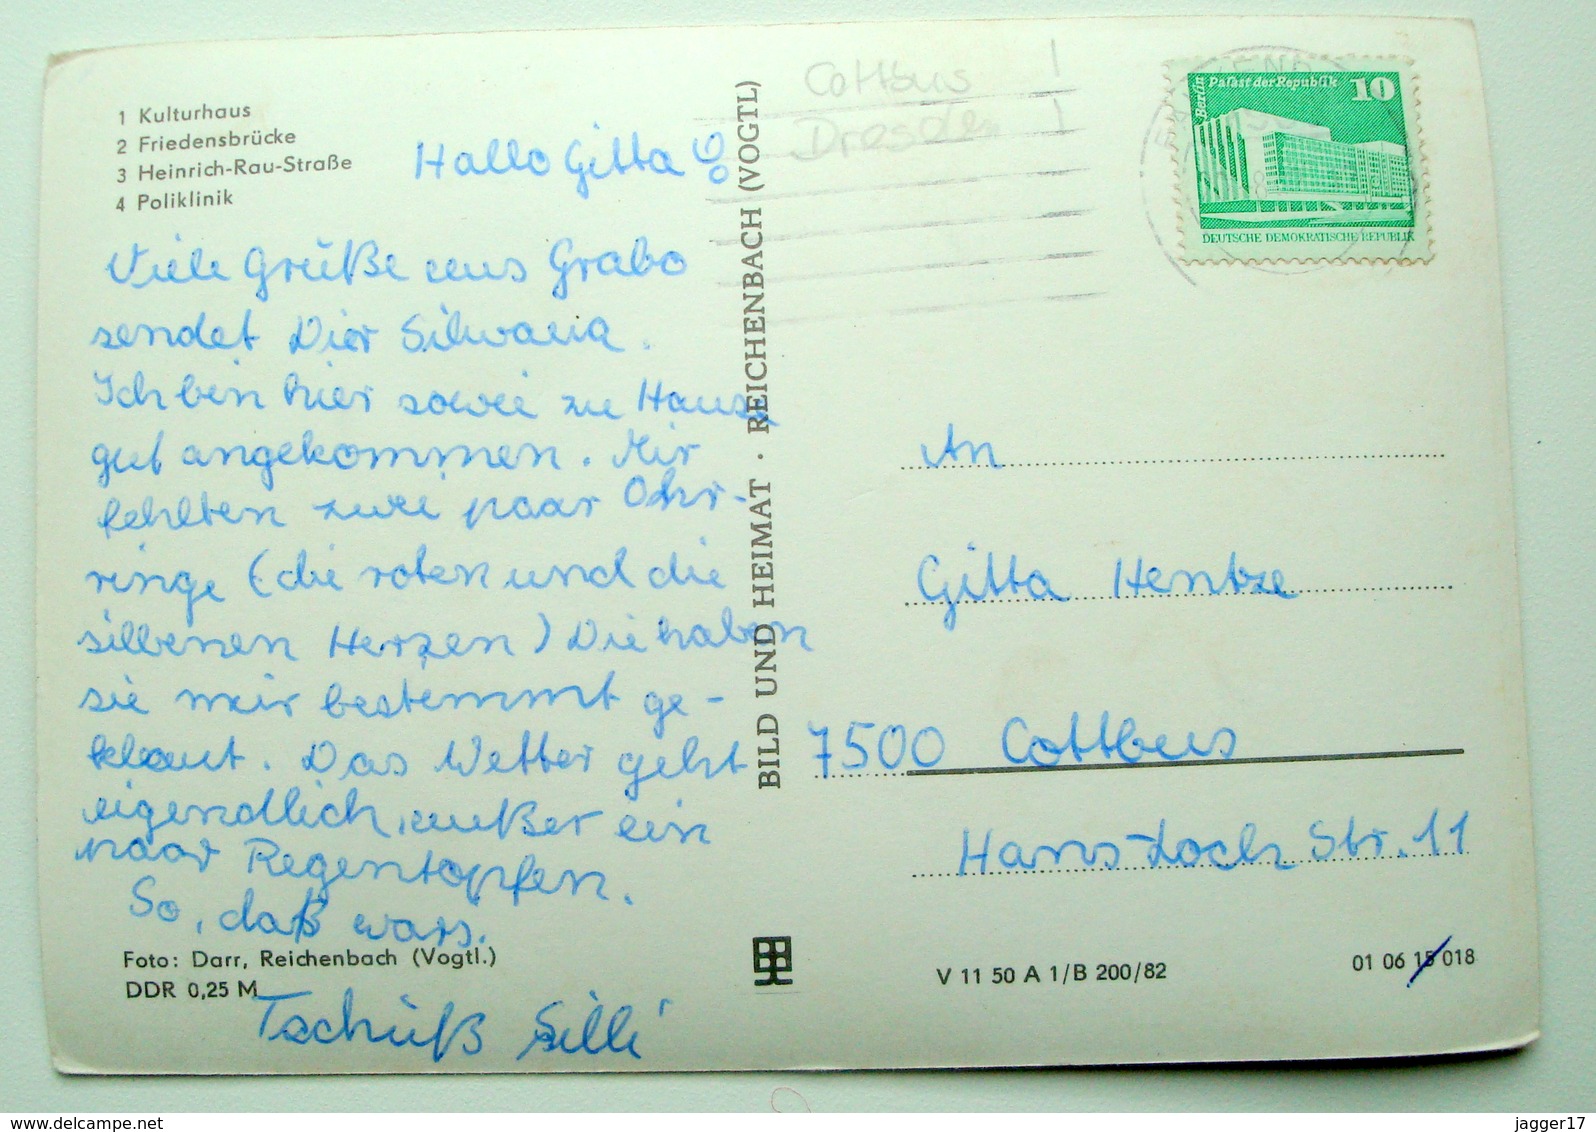 1 Kulturhaus
2 Friedensbrücke
3 Heinrich-Rau-Straße
4 Poliklinik
Hallo Gitta!
Viele Grüße aus Grabo
sendet Dier Silvana.
Ich bin hier sowie zu Hause
gut angekommen. Mir
fehlten zwei paar Ohr-
ringe (die roten und die
silbenen Herzen) Die haben
sie mir bestemmt ge-
klaut. Das Wetter geht
eigendlich, außer ein
paar Regentopfen.
So, daß wars.
Tschüß Silli
Foto: Darr, Reichenbach (Vogtl.)
DDR 0,25 M
BILD UND HEIMAT · REICHENBACH (VOGTL)
Cottbus !
Dresden !
Berlin
Palast der Republik 10
DEUTSCHE DEMOKRATISCHE REPUBLIK
An
Gitta Hentze
7500 Cottbus
Hans-Loch Str. 11
V 11 50 A 1/B 200/82
01 06 15 018
delcampe.net
jagger17